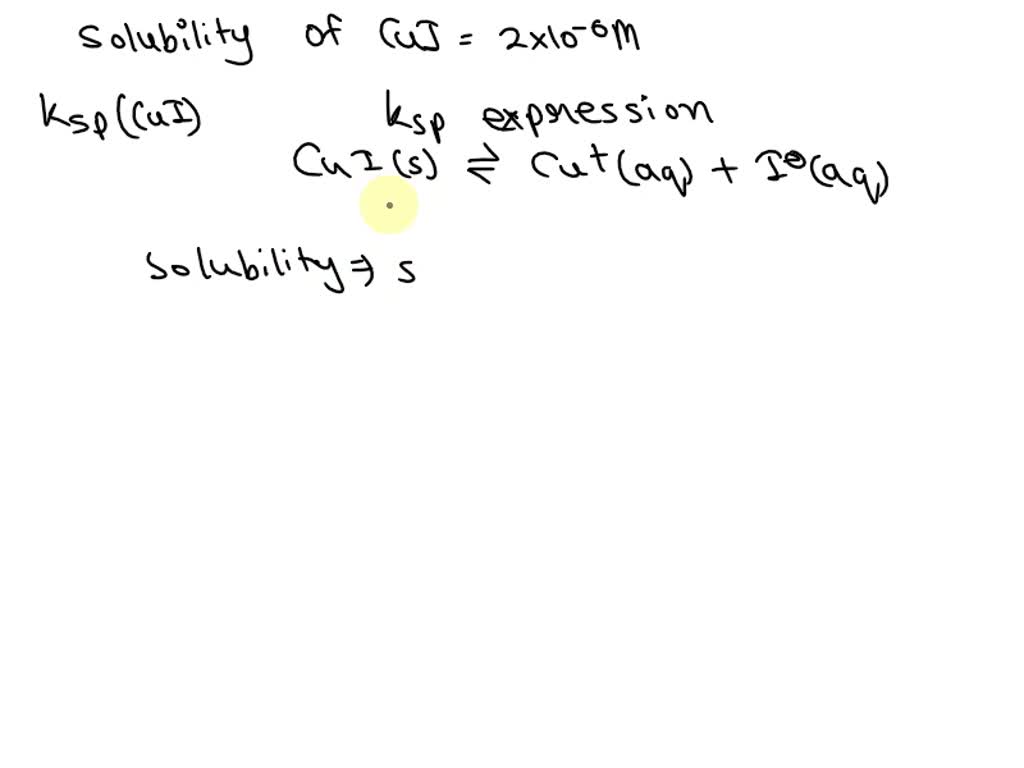 Solubility of CuI = 2×10⁻⁶M
Ksp(CuI) Ksp expression
CuI(s) ⇌ Cu⁺(aq) + I⊖(aq)
Solubility ⇒ s